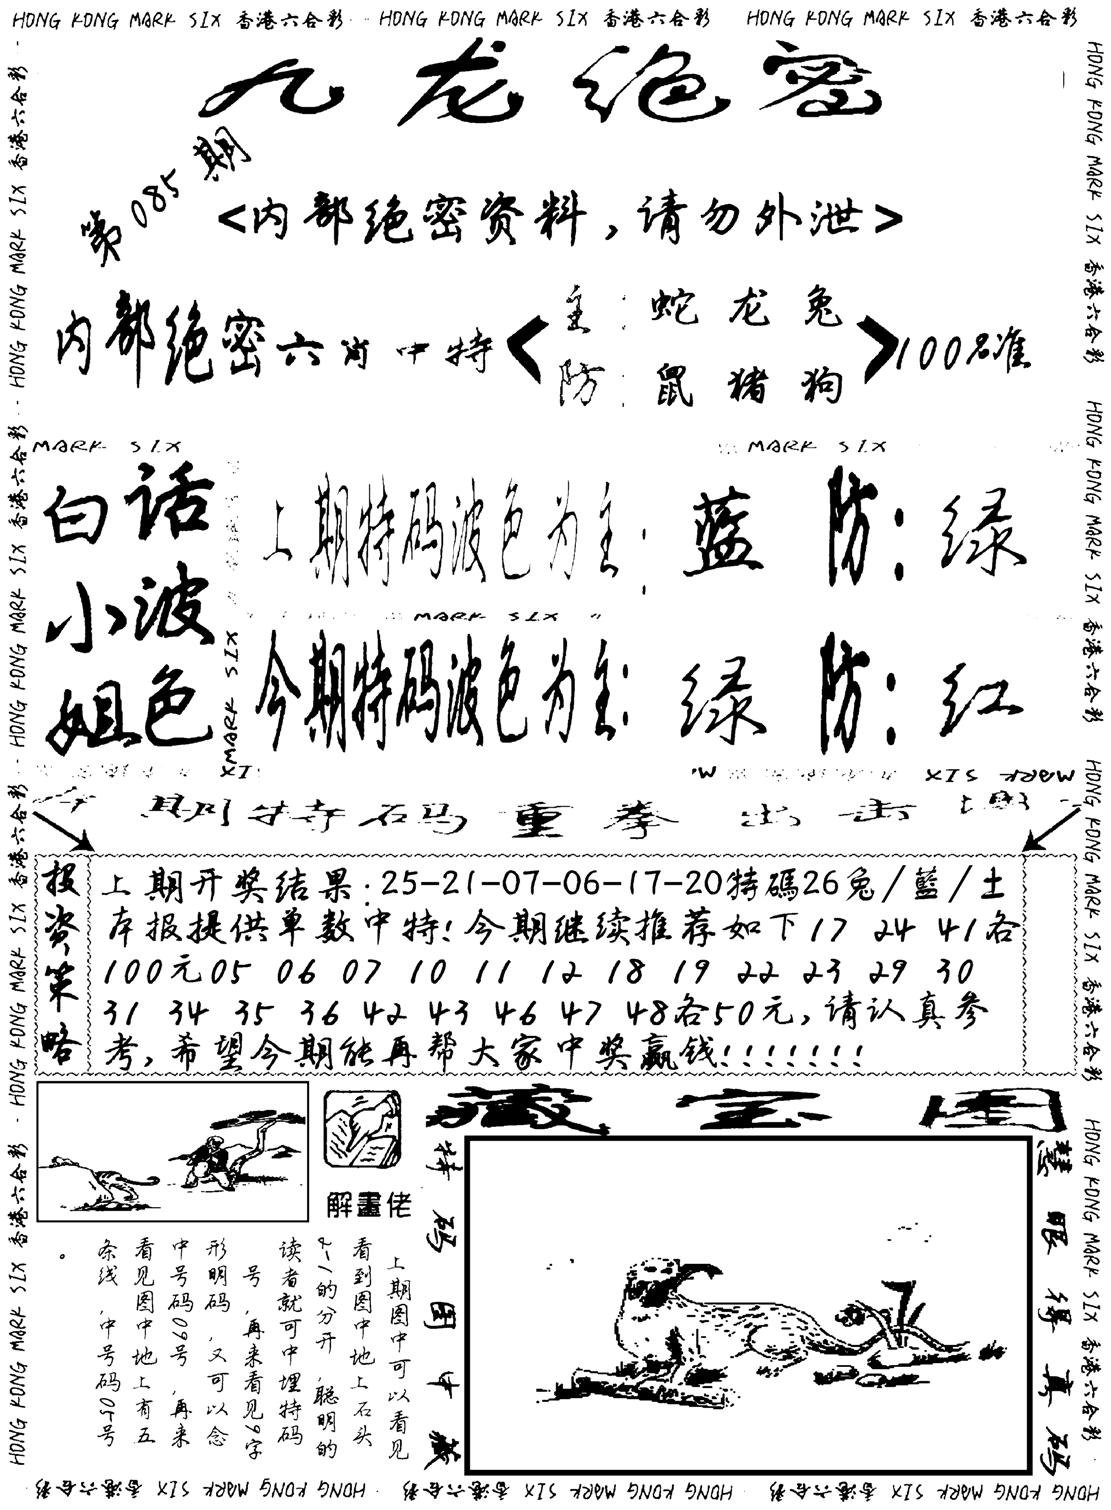 HONG KONG MARK SIX 香港六合彩 HONG KONG MARK SIX 香港六合彩 HONG KONG MARK SIX 香港六合彩
九龙绝密
第085期
<内部绝密资料，请勿外泄>
内部绝密六肖中特
主：蛇龙兔
防：鼠猪狗
100%准
MARK SIX
MARK SIX
白话
小波
姐色
上期特码波色为主：蓝 防：绿
MARK SIX
今期特码波色为主：绿 防：红
MARK SIX
MARK SIX
今期特码重拳出击
投资策略
上期开奖结果：25-21-07-06-17-20特碼26兔/藍/土
本报提供单数中特!今期继续推荐如下17 24 41各
100元05 06 07 10 11 12 18 19 22 23 29 30
31 34 35 36 42 43 46 47 48各50元，请认真参
考，希望今期能再帮大家中奖赢钱!!!!!!!
解畫佬
藏宝图
特码图中藏
慧眼得真码
上期图中可以看见
看到图中地上石头
2-1的分开，聪明的
读者就可中埋特码
号，再来看见9字
形明码，又可以念
中号码09号，再来
看见图中地上有五
条线，中号码05号
。
HONG KONG MARK SIX 香港六合彩 HONG KONG MARK SIX 香港六合彩 HONG KONG MARK SIX 香港六合彩 HONG KONG MARK SIX 香港六合彩
HONG KONG MARK SIX 香港六合彩 HONG KONG MARK SIX 香港六合彩 HONG KONG MARK SIX 香港六合彩 HONG KONG MARK SIX 香港六合彩
HONG KONG MARK SIX 香港六合彩 HONG KONG MARK SIX 香港六合彩 HONG KONG MARK SIX 香港六合彩